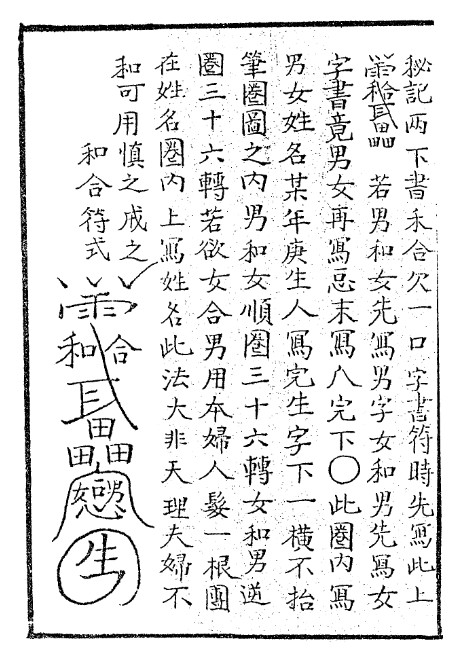 秘記両下書禾合欠一口字書符時先寫此上
若男和女先寫男字女和男先寫女
字書竟男女再寫忌末寫八完下〇此圈内寫
男女姓名某年庚生人寫完生字下一横不抬
筆圈圖之内男和女順圈三十六轉女和男逆
圈三十六轉若欲女合男用本婦人髮一根團
在姓名圈内上寫姓名此法大非天理夫婦不
和可用慎之戒之
和合符式
和合
田田
田田
男女
生